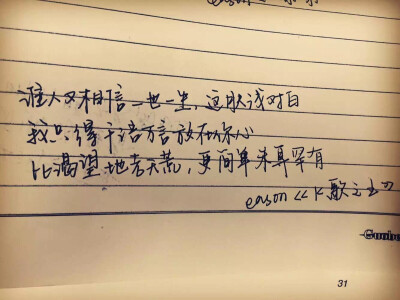 谁人又相信一世一生，这肤浅对白
我只得千语万言放在你心
比渴望地老天荒，更简单未算罕有
eason《K歌之王》
31